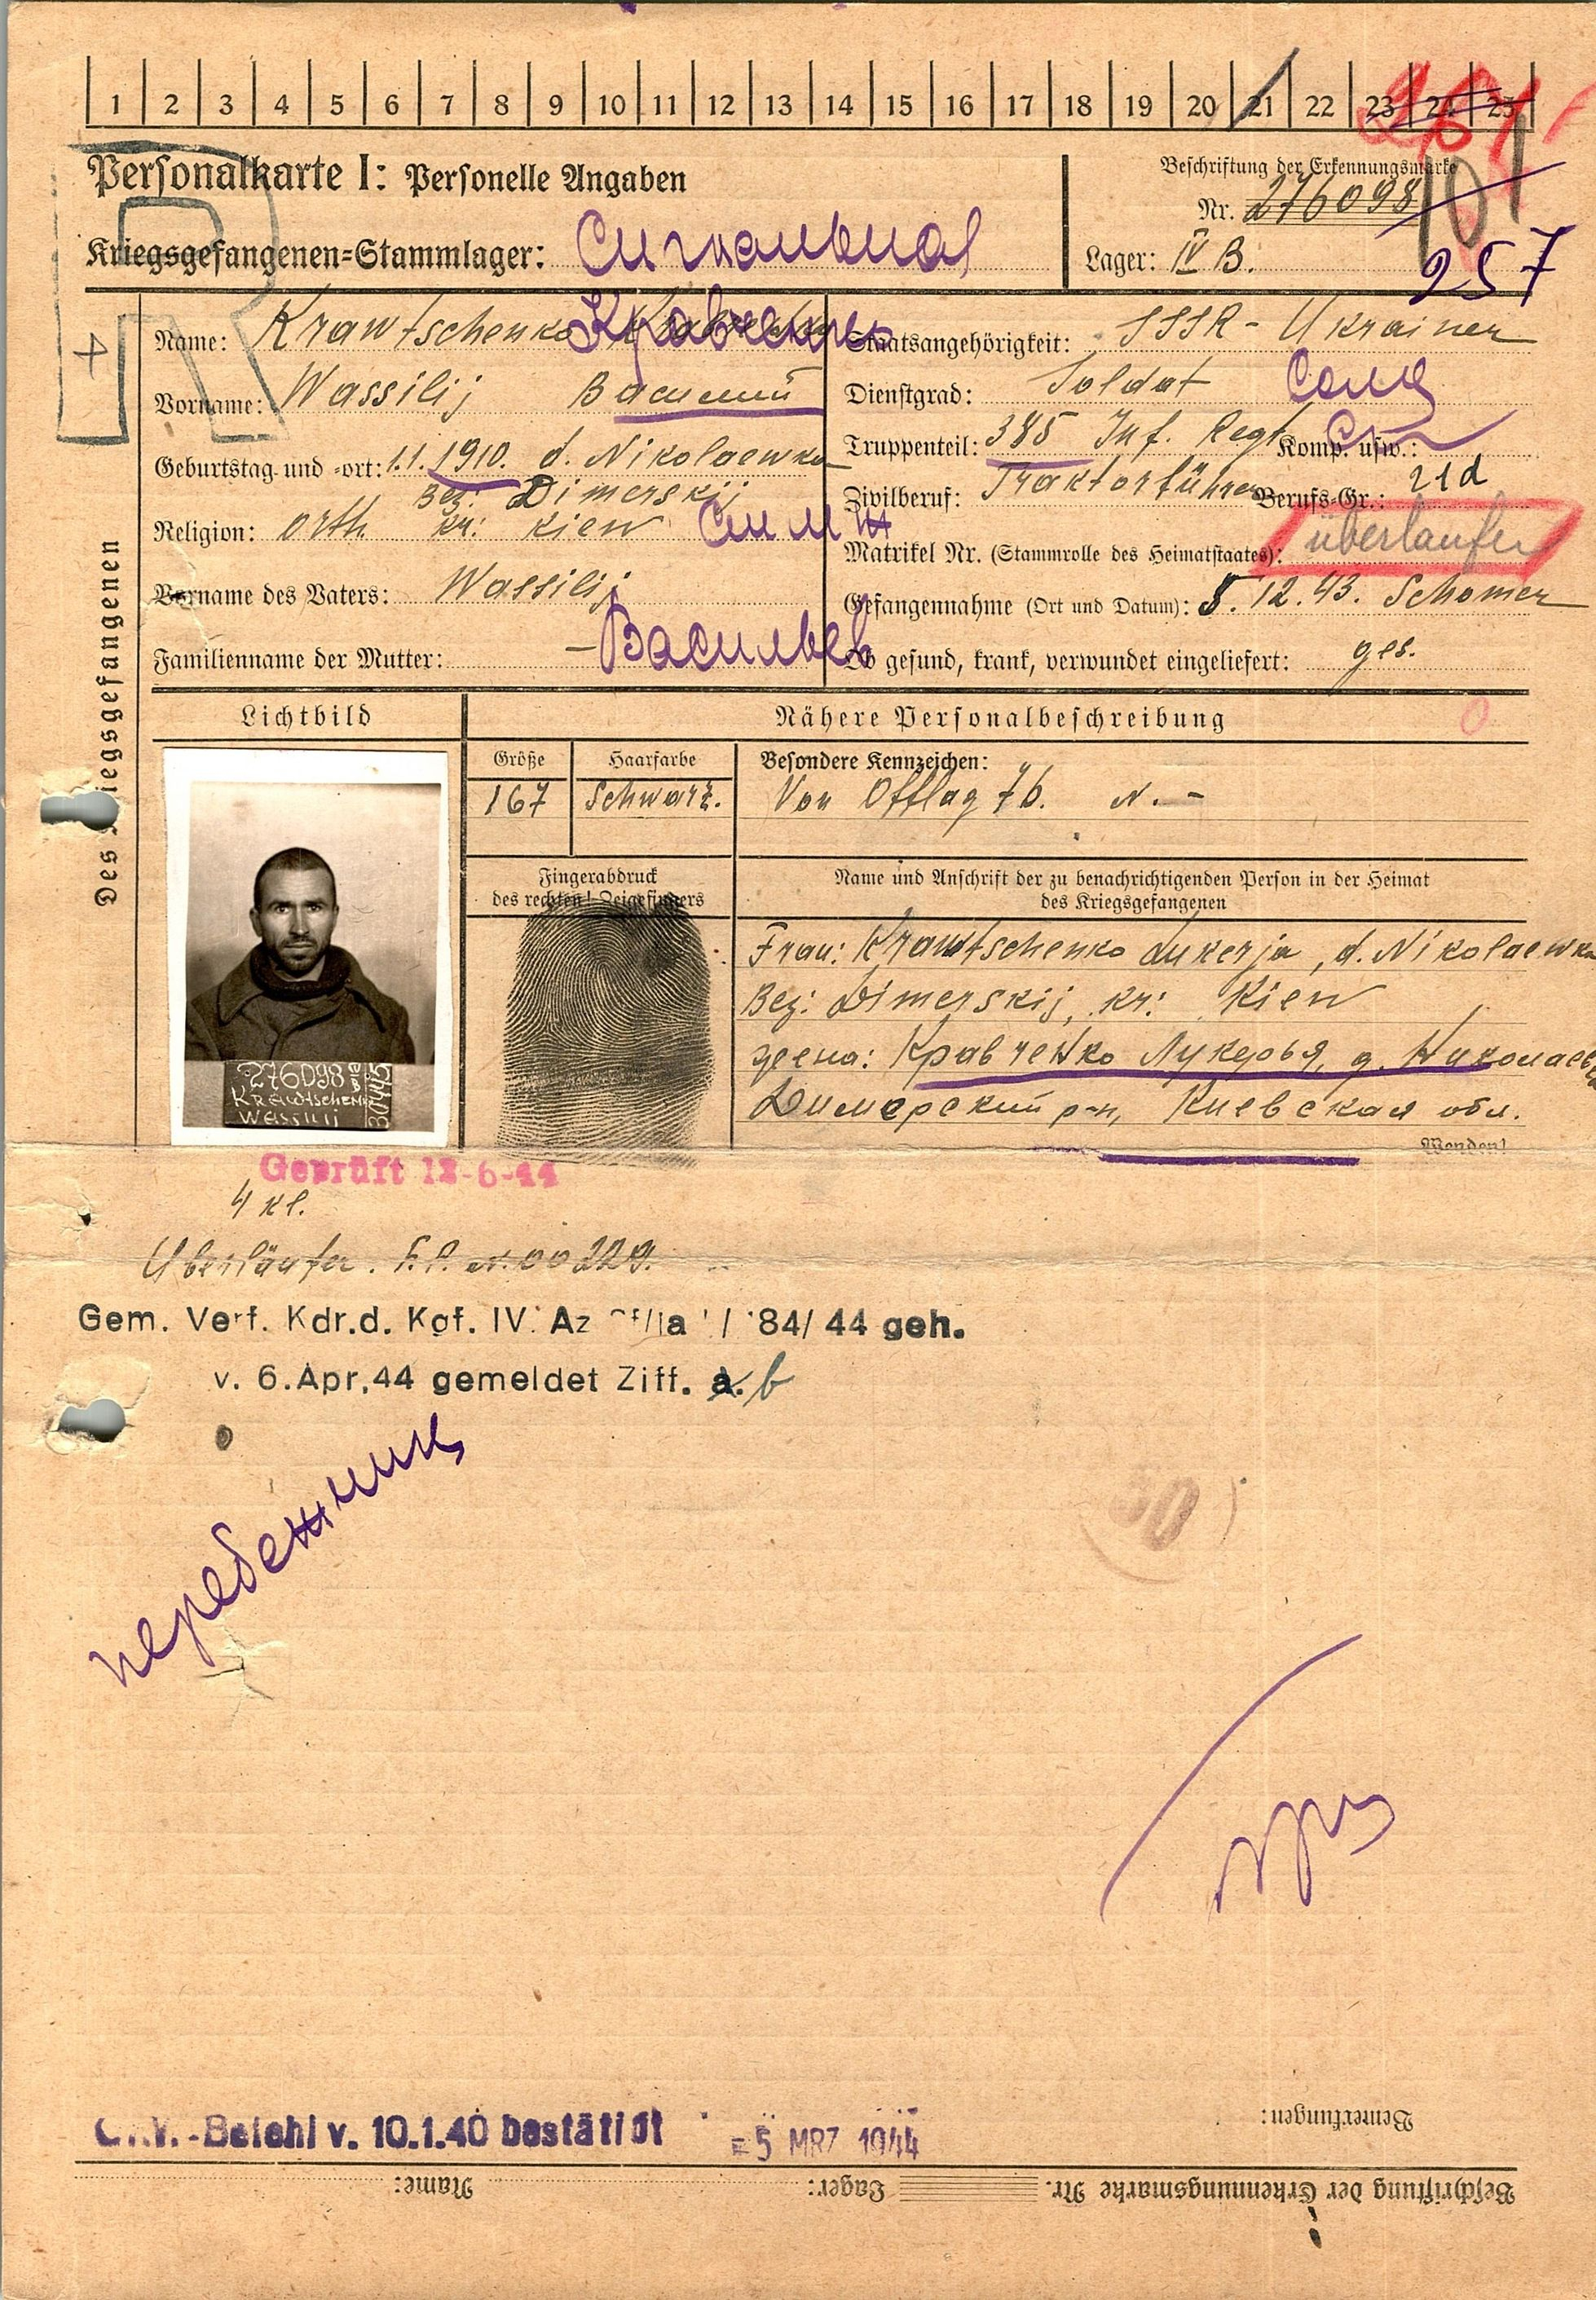 1 2 3 4 5 6 7 8 9 10 11 12 13 14 15 16 17 18 19 20 21 22 23 24 25
Personalkarte I: Personelle Angaben
Beschriftung der Erkennungsmarke
Nr. 276098
Kriegsgefangenen=Stammlager:
Lager: IV B.
257
Des Kriegsgefangenen
Name: Krawtschenko Кравченко
Staatsangehörigkeit: SSSR - Ukrainer
Vorname: Wassilij Василий
Dienstgrad: Soldat
Geburtstag und =ort: 1.1.1910. d. Nikolaewka
Truppenteil: 385 Inf. Regt. Komp. usw.:
Bez: Dimerskij
Zivilberuf: Traktorführer Berufs=Gr.: 21d
Religion: orth. kr: Kiew
Matrikel Nr. (Stammrolle des Heimatstaates): überlaufer
Vorname des Vaters: Wassilij
Gefangennahme (Ort und Datum): 5.12.43. Schomer
Familienname der Mutter: –
Васильев
Ob gesund, krank, verwundet eingeliefert: ges.
Lichtbild
Nähere Personalbeschreibung
Größe Haarfarbe
Besondere Kennzeichen:
167 Schwarz.
Von Offlag 76. N. –
Fingerabdruck
des rechten! Zeigefingers
Name und Anschrift der zu benachrichtigenden Person in der Heimat
des Kriegsgefangenen
Frau: Krawtschenko Lukerja, d. Nikolaewka
Bez: Dimerskij, kr: Kiew
жена: Кравченко Лукерья, д. Николаевка
Димерский р-н, Киевская обл.
Wenden!
276098
Krawtschenko
Wassilij
Geprüft 12-6-44
4 kl.
Überläufer. F.P. N. 00229.
Gem. Verf. Kdr.d. Kgf. IV. Az / 84/ 44 geh.
v. 6.Apr.44 gemeldet Ziff. a. b
перебежчик
-Befehl v. 10.1.40 bestätigt
- 5 MRZ 1944
Bemerkungen:
Beschriftung der Erkennungsmarke Nr. Lager: Name: